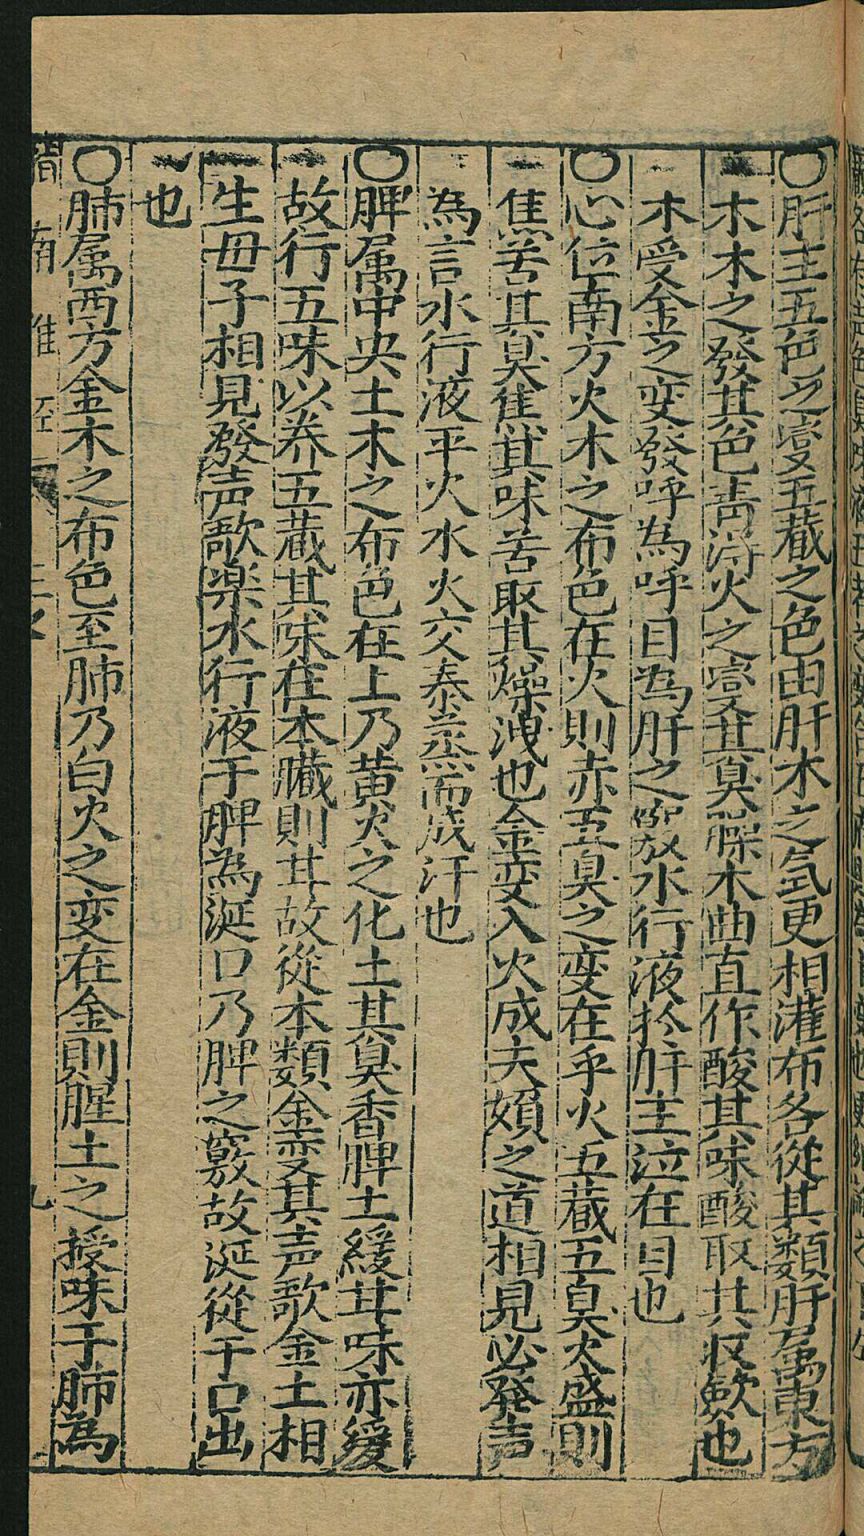 〇肝主五色之变五藏之色由肝木之気更相灌布各從其類肝属東方
木木之發其色青得火之变其臭臊木曲直作酸其味酸取其収歛也
木受金之变發呼為呼目為肝之竅水行液扵肝主泣在目也
〇心位南方火木之布色在火則赤五臭之变在乎火五藏五臭火盛則
焦苦其臭焦其味苦取其燥洩也金变入火成夫婦之道相見必發声
為言水行液平火水火交泰蒸而成汗也
〇脾属中央土木之布色在上乃黄火之化土其臭香脾土緩其味亦緩
故行五味以养五藏其味在本臓則甘故從本類金变其声歌金土相
生母子相見發声歌楽水行液于脾為涎口乃脾之竅故涎從于口出
也
〇肺属西方金木之布色至肺乃白火之变在金則腥土之授味于肺為